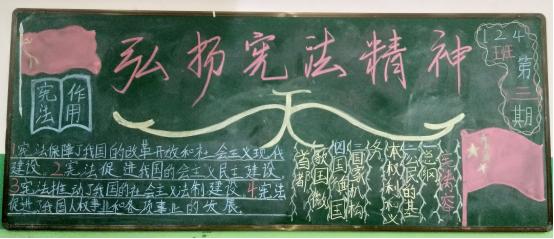 弘扬宪法精神
124班
第二期
宪法
作用
1宪法保障了我国的改革开放和社会主义现代
建设。2宪法促进我国社会主义民主建设
3宪法推动了我国的社会主义法制建设4宪法
促进了我国人权事业和各项事业的发展.
宪法容
一总纲
二公民的基
本权利和义
务
三国家机构
四国旗国
歌国徽
首都